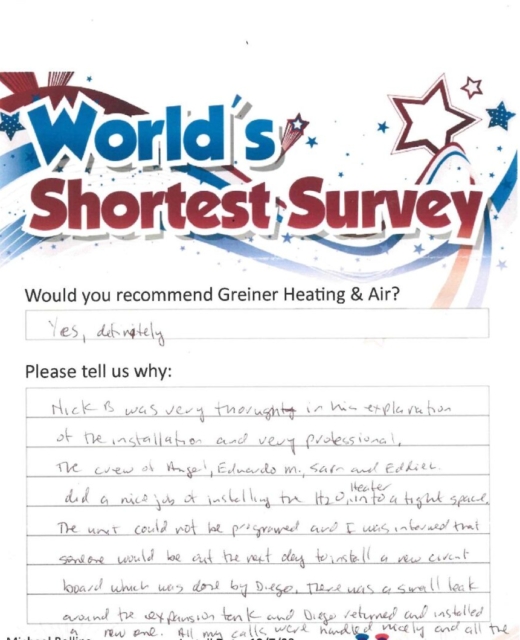 World's
Shortest Survey
Would you recommend Greiner Heating & Air?
Yes, definitely
Please tell us why:
Nick B was very thorught in his explanation
of the installation and very professional.
The crew of Angel, Eduardo M., Sam and Eddie
did a nice job of installing the H2O Heater into a tight space.
The unit could not be programed and I was informed that
someone would be out the next day to install a new circuit
board which was done by Diego. There was a small leak
around the expansion tank and Diego returned and installed
a new one. All my calls were handled nicely and all the